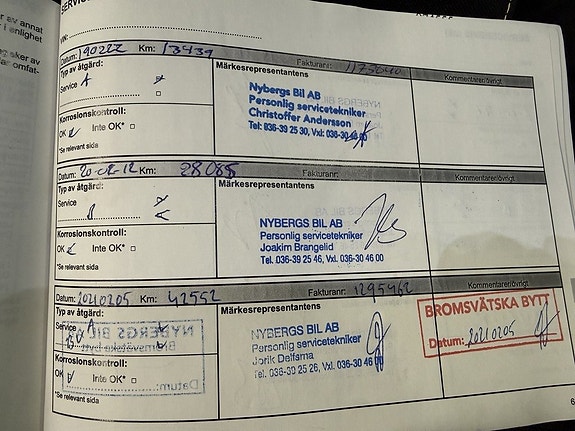 er av annat
r i enlighet
sker av
dar omfat-
SERVICE
VIN:
Datum: 190222 Km: 13439 Fakturanr: Kommentarer/övrigt
Typ av åtgärd:
Service A
Korrosionskontroll:
OK Inte OK*
*Se relevant sida
Märkesrepresentantens
Nybergs Bil AB
Personlig servicetekniker
Christoffer Andersson
Tel: 036-39 25 30, Vxl: 036-30 46 00
Datum: 20-02-12 Km: 28085 Fakturanr: Kommentarer/övrigt
Typ av åtgärd:
Service
B
Korrosionskontroll:
OK Inte OK*
*Se relevant sida
Märkesrepresentantens
NYBERGS BIL AB
Personlig servicetekniker
Joakim Brangelid
Tel. 036-39 25 46, Vxl. 036-30 46 00
Datum: 20210205 Km: 42552 Fakturanr: 1295462 Kommentarer/övrigt
Typ av åtgärd:
Service A
Korrosionskontroll:
OK Inte OK*
*Se relevant sida
Märkesrepresentantens
NYBERGS BIL AB
Personlig servicetekniker
Jorik Delfsma
Tel. 036-39 25 26, Vxl. 036-30 46 00
BROMSVÄTSKA BYTT
Datum: 20210205